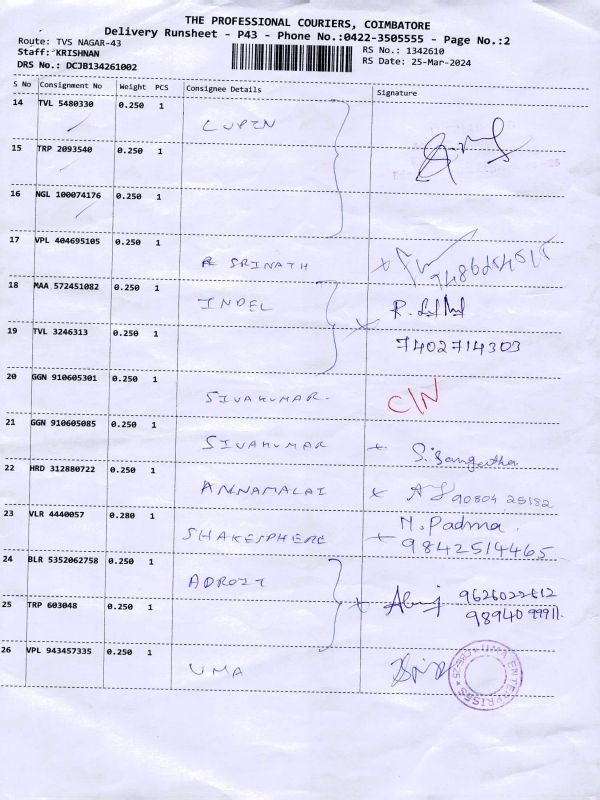 THE PROFESSIONAL COURIERS, COIMBATORE
Delivery Runsheet - P43 - Phone No.:0422-3505555 - Page No.:2
Route: TVS NAGAR-43
RS No.: 1342610
Staff: KRISHNAN
RS Date: 25-Mar-2024
DRS No.: DCJB134261002
S No Consignment No Weight PCS Consignee Details Signature
14 TVL 5480330 0.250 1
LUPIN
15 TRP 2093540 0.250 1
16 NGL 100074176 0.250 1
17 VPL 404695105 0.250 1
R SRINATH
18 MAA 572451082 0.250 1
INDEL
19 TVL 3246313 0.250 1
7402714303
20 GGN 910605301 0.250 1
SIVAKUMAR. C/N
21 GGN 910605085 0.250 1
SIVAKUMAR S. Sangeetha
22 HRD 312880722 0.250 1
ANNAMALAI 90804 25182
23 VLR 4440057 0.280 1
M. Padma
SHAKESPHERE 9842514465
24 BLR 5352062758 0.250 1
ADROIT
9626022612
25 TRP 603048 0.250 1
98940 99911
26 VPL 943457335 0.250 1
UMA
UMA ENTERPRISES